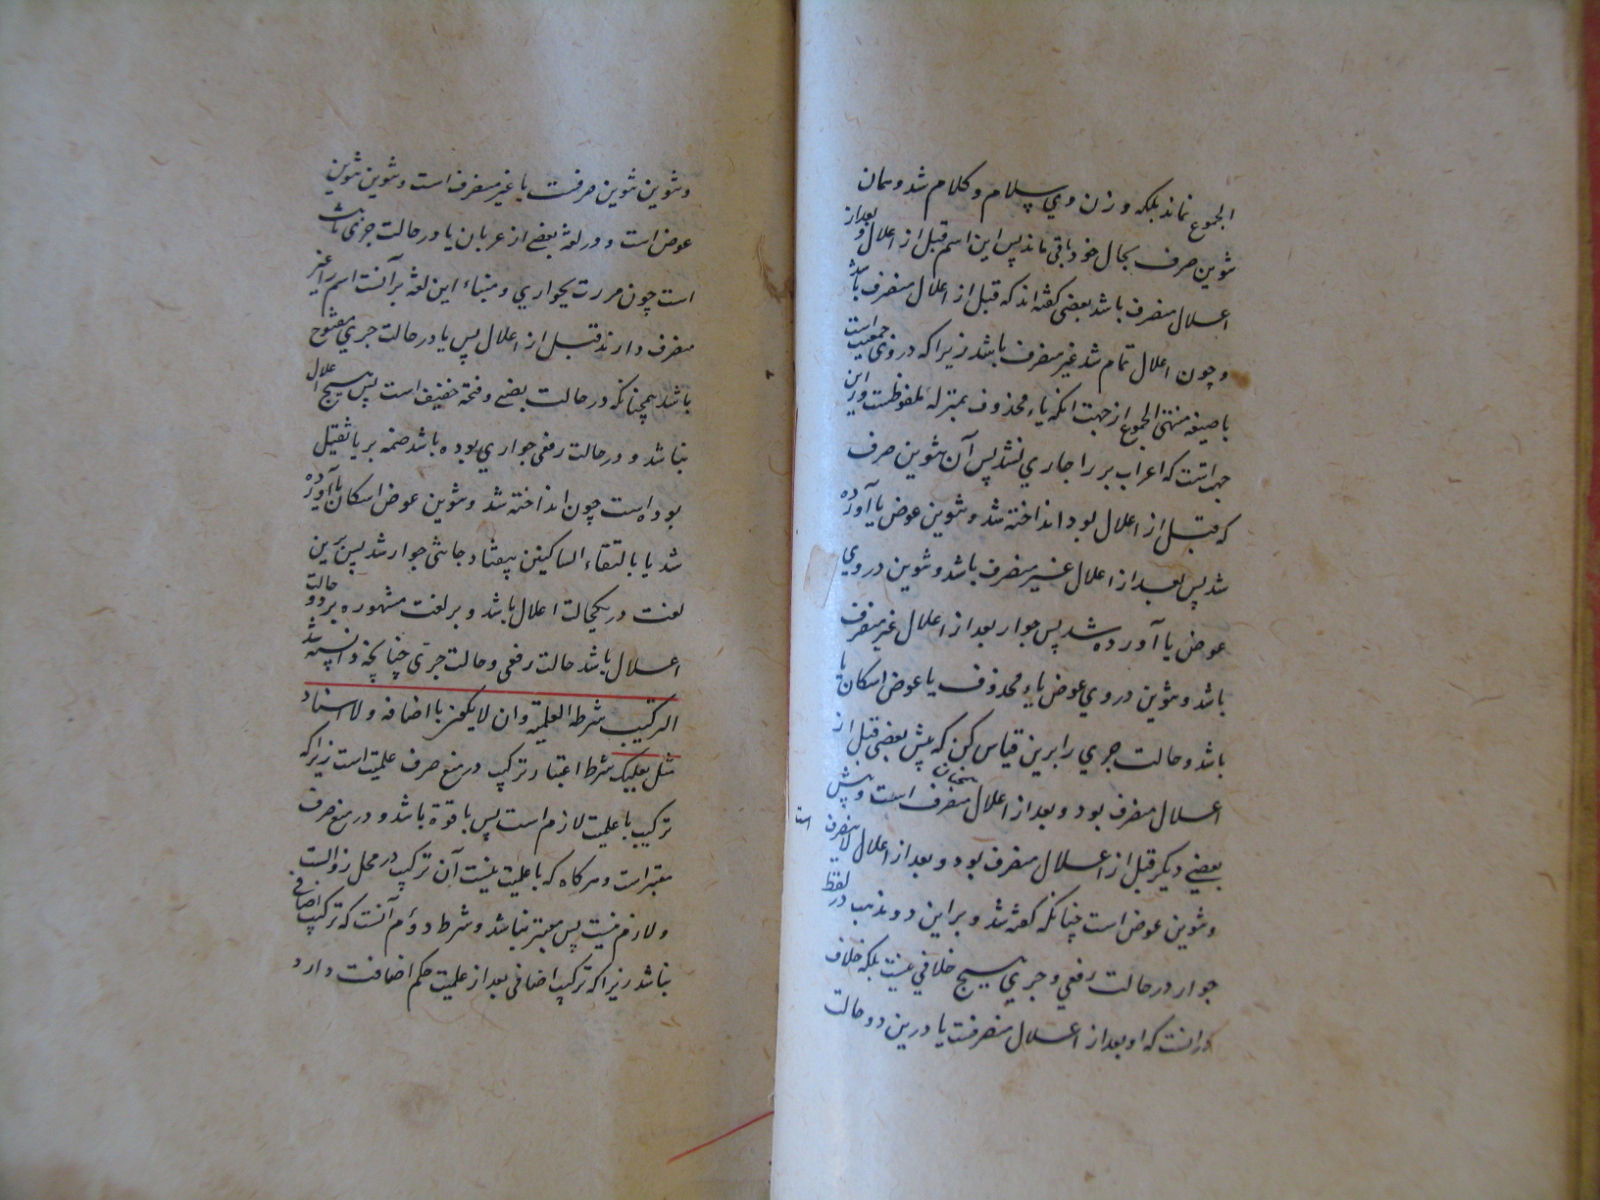 الجموع نماند بلکه وزن وي سلام و کلام شد و همان
تنوین صرف بحال خود باقی ماند پس این اسم قبل از اعلال و بعد از
اعلال منصرف باشد بعضی کفته اند که قبل از اعلال منصرف باشد
و چون اعلال تمام شد غیر منصرف باشد زیرا که در وي جمعیت است
با صیغه منتهی الجموع از جهت انکه یاء محذوف بمنزله ملفوظست و این
جهتست که اعراب بر را جاري نشد پس آن تنوین صرف
که قبل از اعلال بود انداخته شد و تنوین عوض یا آورده
شد پس بعد از اعلال غیر منصرف باشد و تنوین در وي
عوض یا آورده شد پس جوار بعد از اعلال غیر منصرف
باشد و تنوین در وي عوض یاء محذوف یا عوض اسکان یا
باشد و حالت جري را برین قیاس کن که پیش بعضی قبل از
اعلال منصرف بود و بعد از اعلال همچنان منصرف است و پیش
بعضي دیکر قبل از اعلال منصرف بود و بعد از اعلال لاینصرف
است
و تنوین عوض است چنانکه کفته شد و بر این دو مذهب در لفظ
جوار در حالت رفعي و جري هیچ خلافي نیست بلکه خلاف
در انست که او بعد از اعلال منصرفست یا درین دو حالت
و تنوین تنوین صرفست یا غیر منصرف است و تنوین تنوین
عوض است و در لغة بعضے از عربان یا در حالت جري ثابت
است چون مررت بجواري و مبناء این لغة بر آنست اسم را غیر
منصرف دارند قبل از اعلال پس یا در حالت جري مفتوح
باشد همچنانکه در حالت نصبے و فتحه خفیف است پس هیچ اعلال
نباشد و در حالت رفعی جواري بوده باشد ضمه بر یا ثقیل
بوده است چون انداخته شد و تنوین عوض اسکان یا آورده
شد یا بالتقاء الساکنین بیفتاد جاءتني جوار شد پس برین
لغت در یکحالت اعلال باشد و بر لغت مشهوره بر دو حالت
اعلال باشد حالت رفعی و حالت جرّي چنانچه دانسته شد
الترکیب شرطه العلمیة وان لا یکون باضافه ولا اسناد
مثل بعلبک شرط اعتبار ترکیب در منع صرف علمیت است زیرا که
ترکیب با علمیت لازم است پس با قوة باشد و در منع صرف
معتبر است و هر کاه که با علمیت نیست آن ترکیب در محل زوالست
و لازم نیست پس معتبر نباشد و شرط دؤم آنست که ترکیب اضافي
نباشد زیرا که ترکیب اضافی بعد از علمیت حکم اضافت دارد